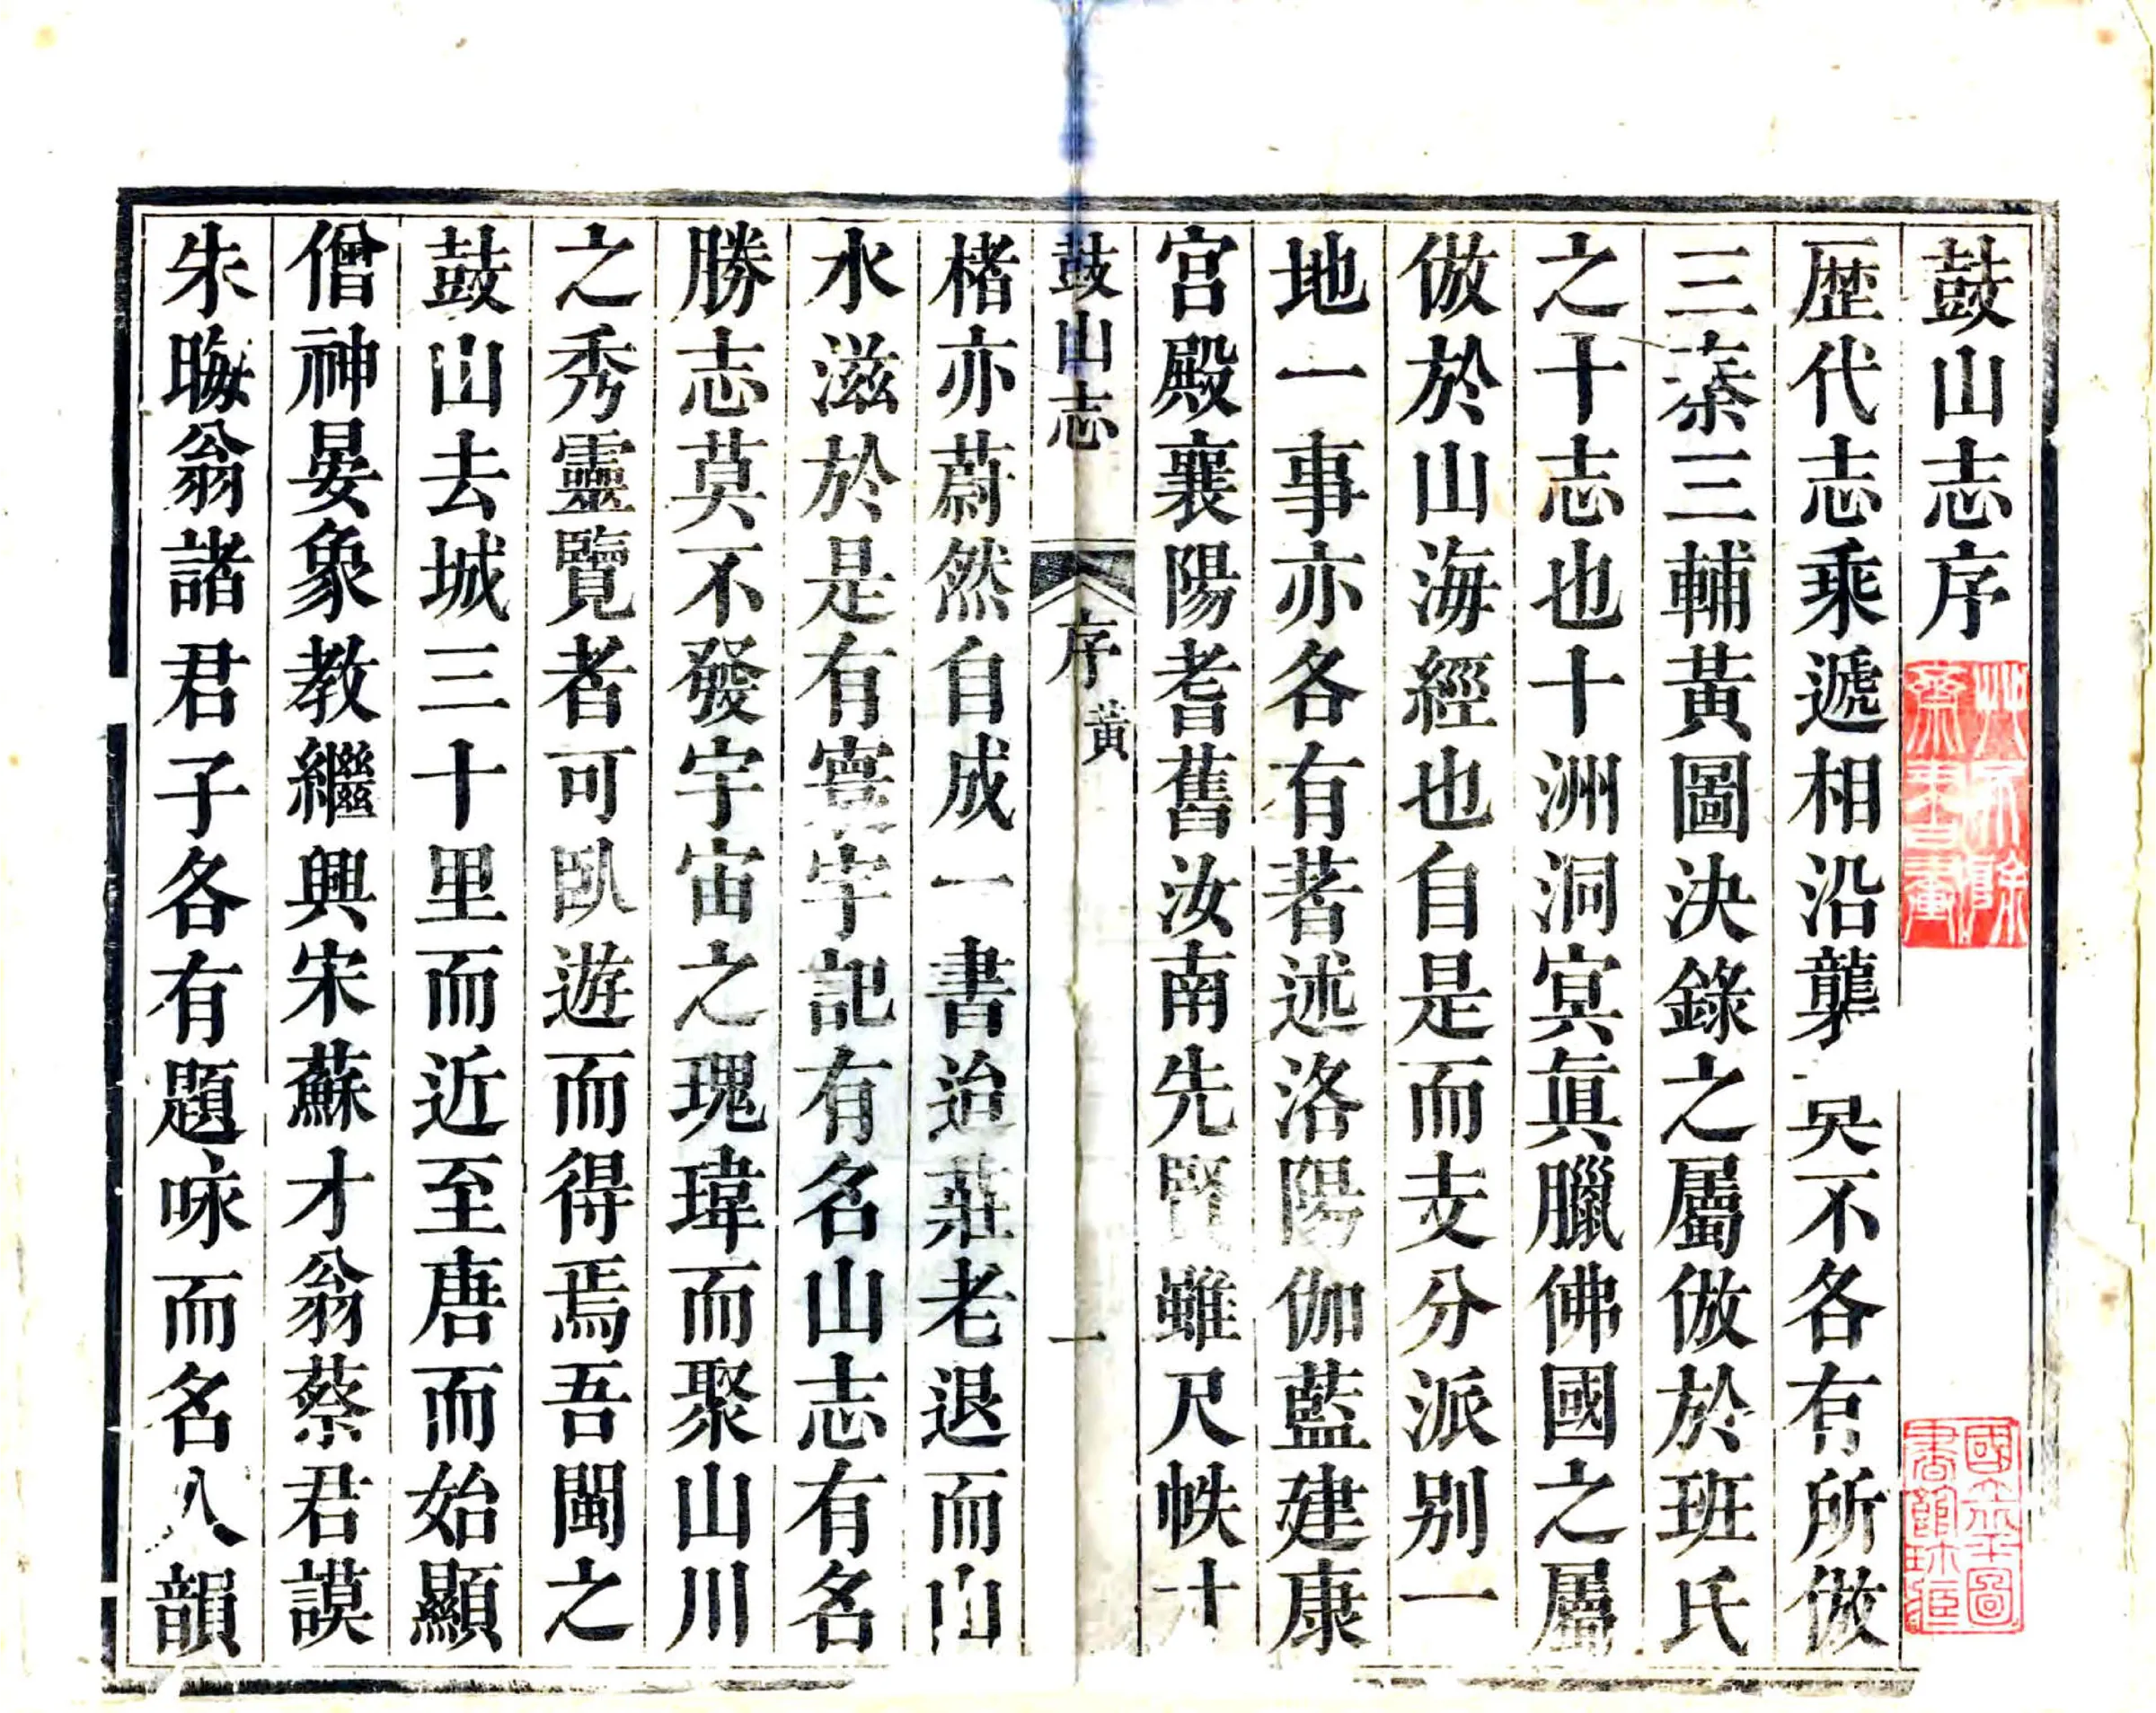 鼓山志序
歴代志乘遞相沿襲莫不各有所倣
三秦三輔黃圖決錄之屬倣於班氏
之十志也十洲洞冥眞臘佛國之屬
倣於山海經也自是而支分派别一
地一事亦各有著述洛陽伽藍建康
宮殿襄陽耆舊汝南先賢雖尺帙寸
鼓山志 序 黃 一
楮亦蔚然自成一書迨莊老退而山
水滋於是有寰宇記有名山志有名
勝志莫不發宇宙之瑰瑋而聚山川
之秀靈覽者可臥遊而得焉吾閩之
鼓山去城三十里而近至唐而始顯
僧神晏象教繼興宋蘇才翁蔡君謨
朱晦翁諸君子各有題咏而名人韻
國立北平圖
書館珍藏